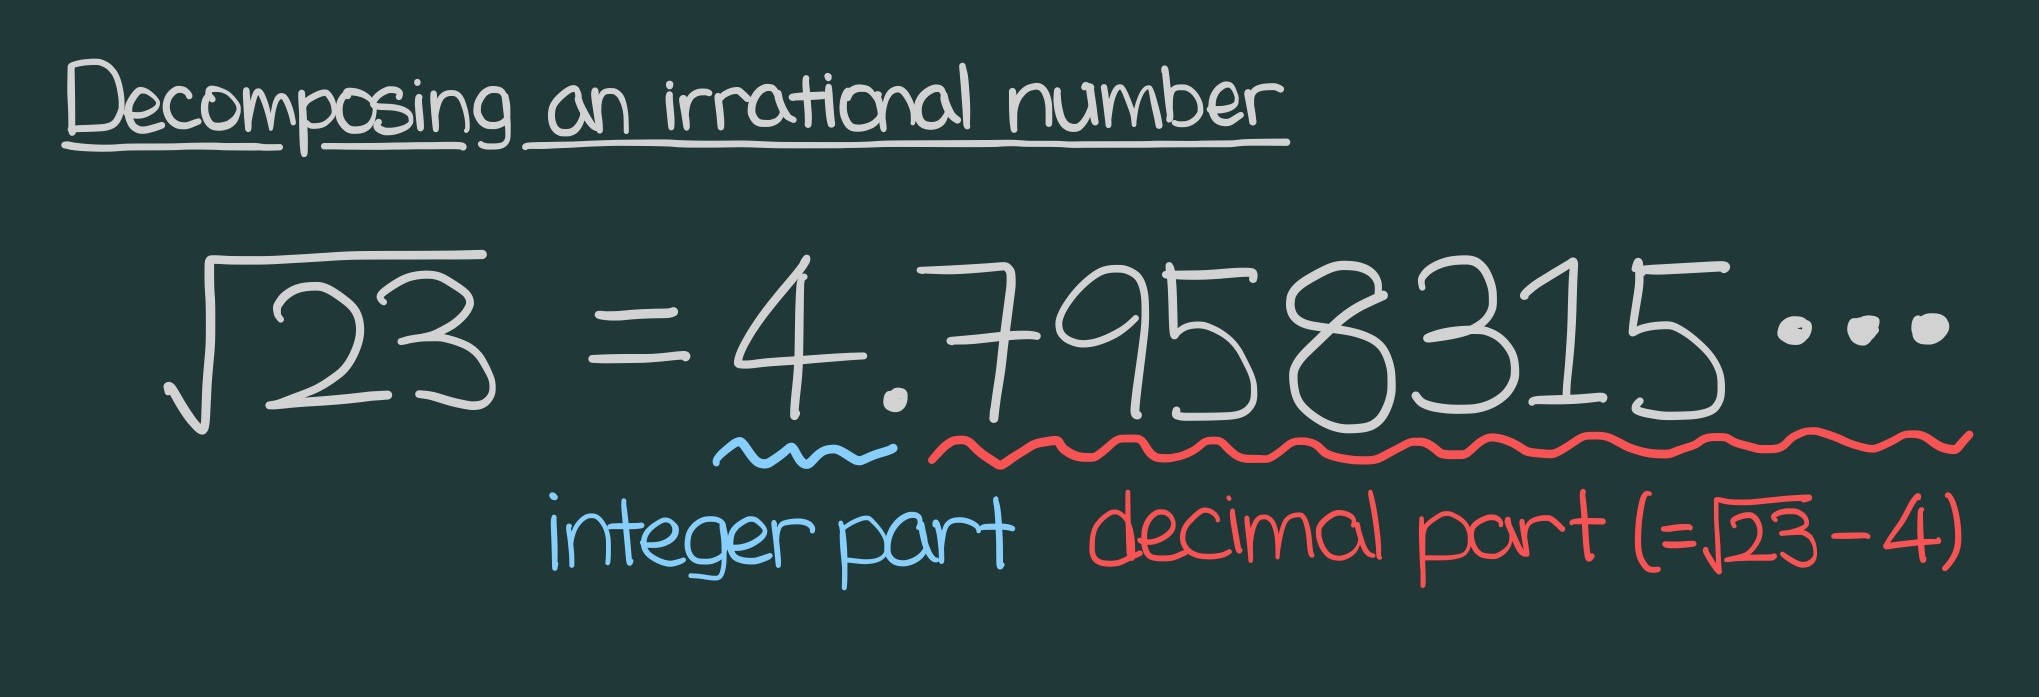 Decomposing an irrational number
√23 = 4.7958315...
integer part decimal part (=√23-4)